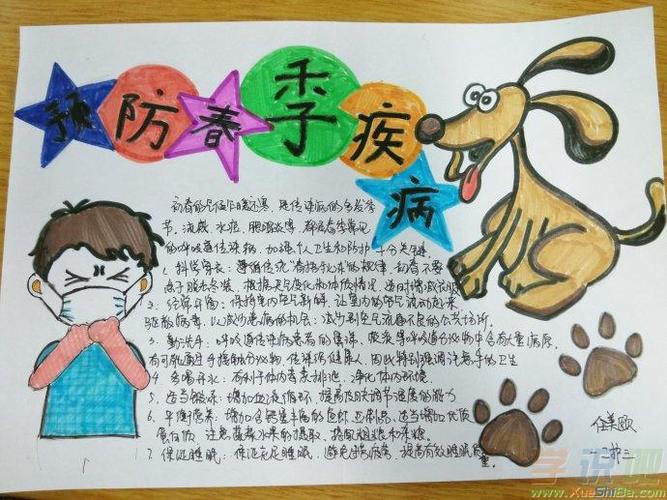 预防春季疾病
初春的天气乍暖还寒,是传染病的多发季
节,流感、水痘、腮腺炎等都是春季常见
的呼吸道传染病,加强个人卫生和防护十分关键。
1. 科学穿衣:遵循传统“春捂秋冻”的规律,初春不要
急于脱去冬装,根据天气变化和体质情况,适时增减衣服
2. 经常开窗:保持室内空气新鲜,让室内的空气流动起来
驱散病毒,以减少患病的机会;减少到空气流通不良的公共场所。
3. 勤洗手:呼吸道传染病患者的鼻涕、痰液等呼吸道分泌物中含有大量病原,
有可能通过手接触分泌物,传染给健康人,因此特别强调注意手的卫生
4. 多喝开水:有利于体内毒素排泄,净化体内环境
5. 适当锻炼:增加血液循环,提高
6. 平衡膳食:增加含钙丰富的
蛋白质,注意蔬菜水果的摄取,
7. 保证睡眠:保证充足睡眠,避免
一、2班
学识吧
www.XueShiBa.com